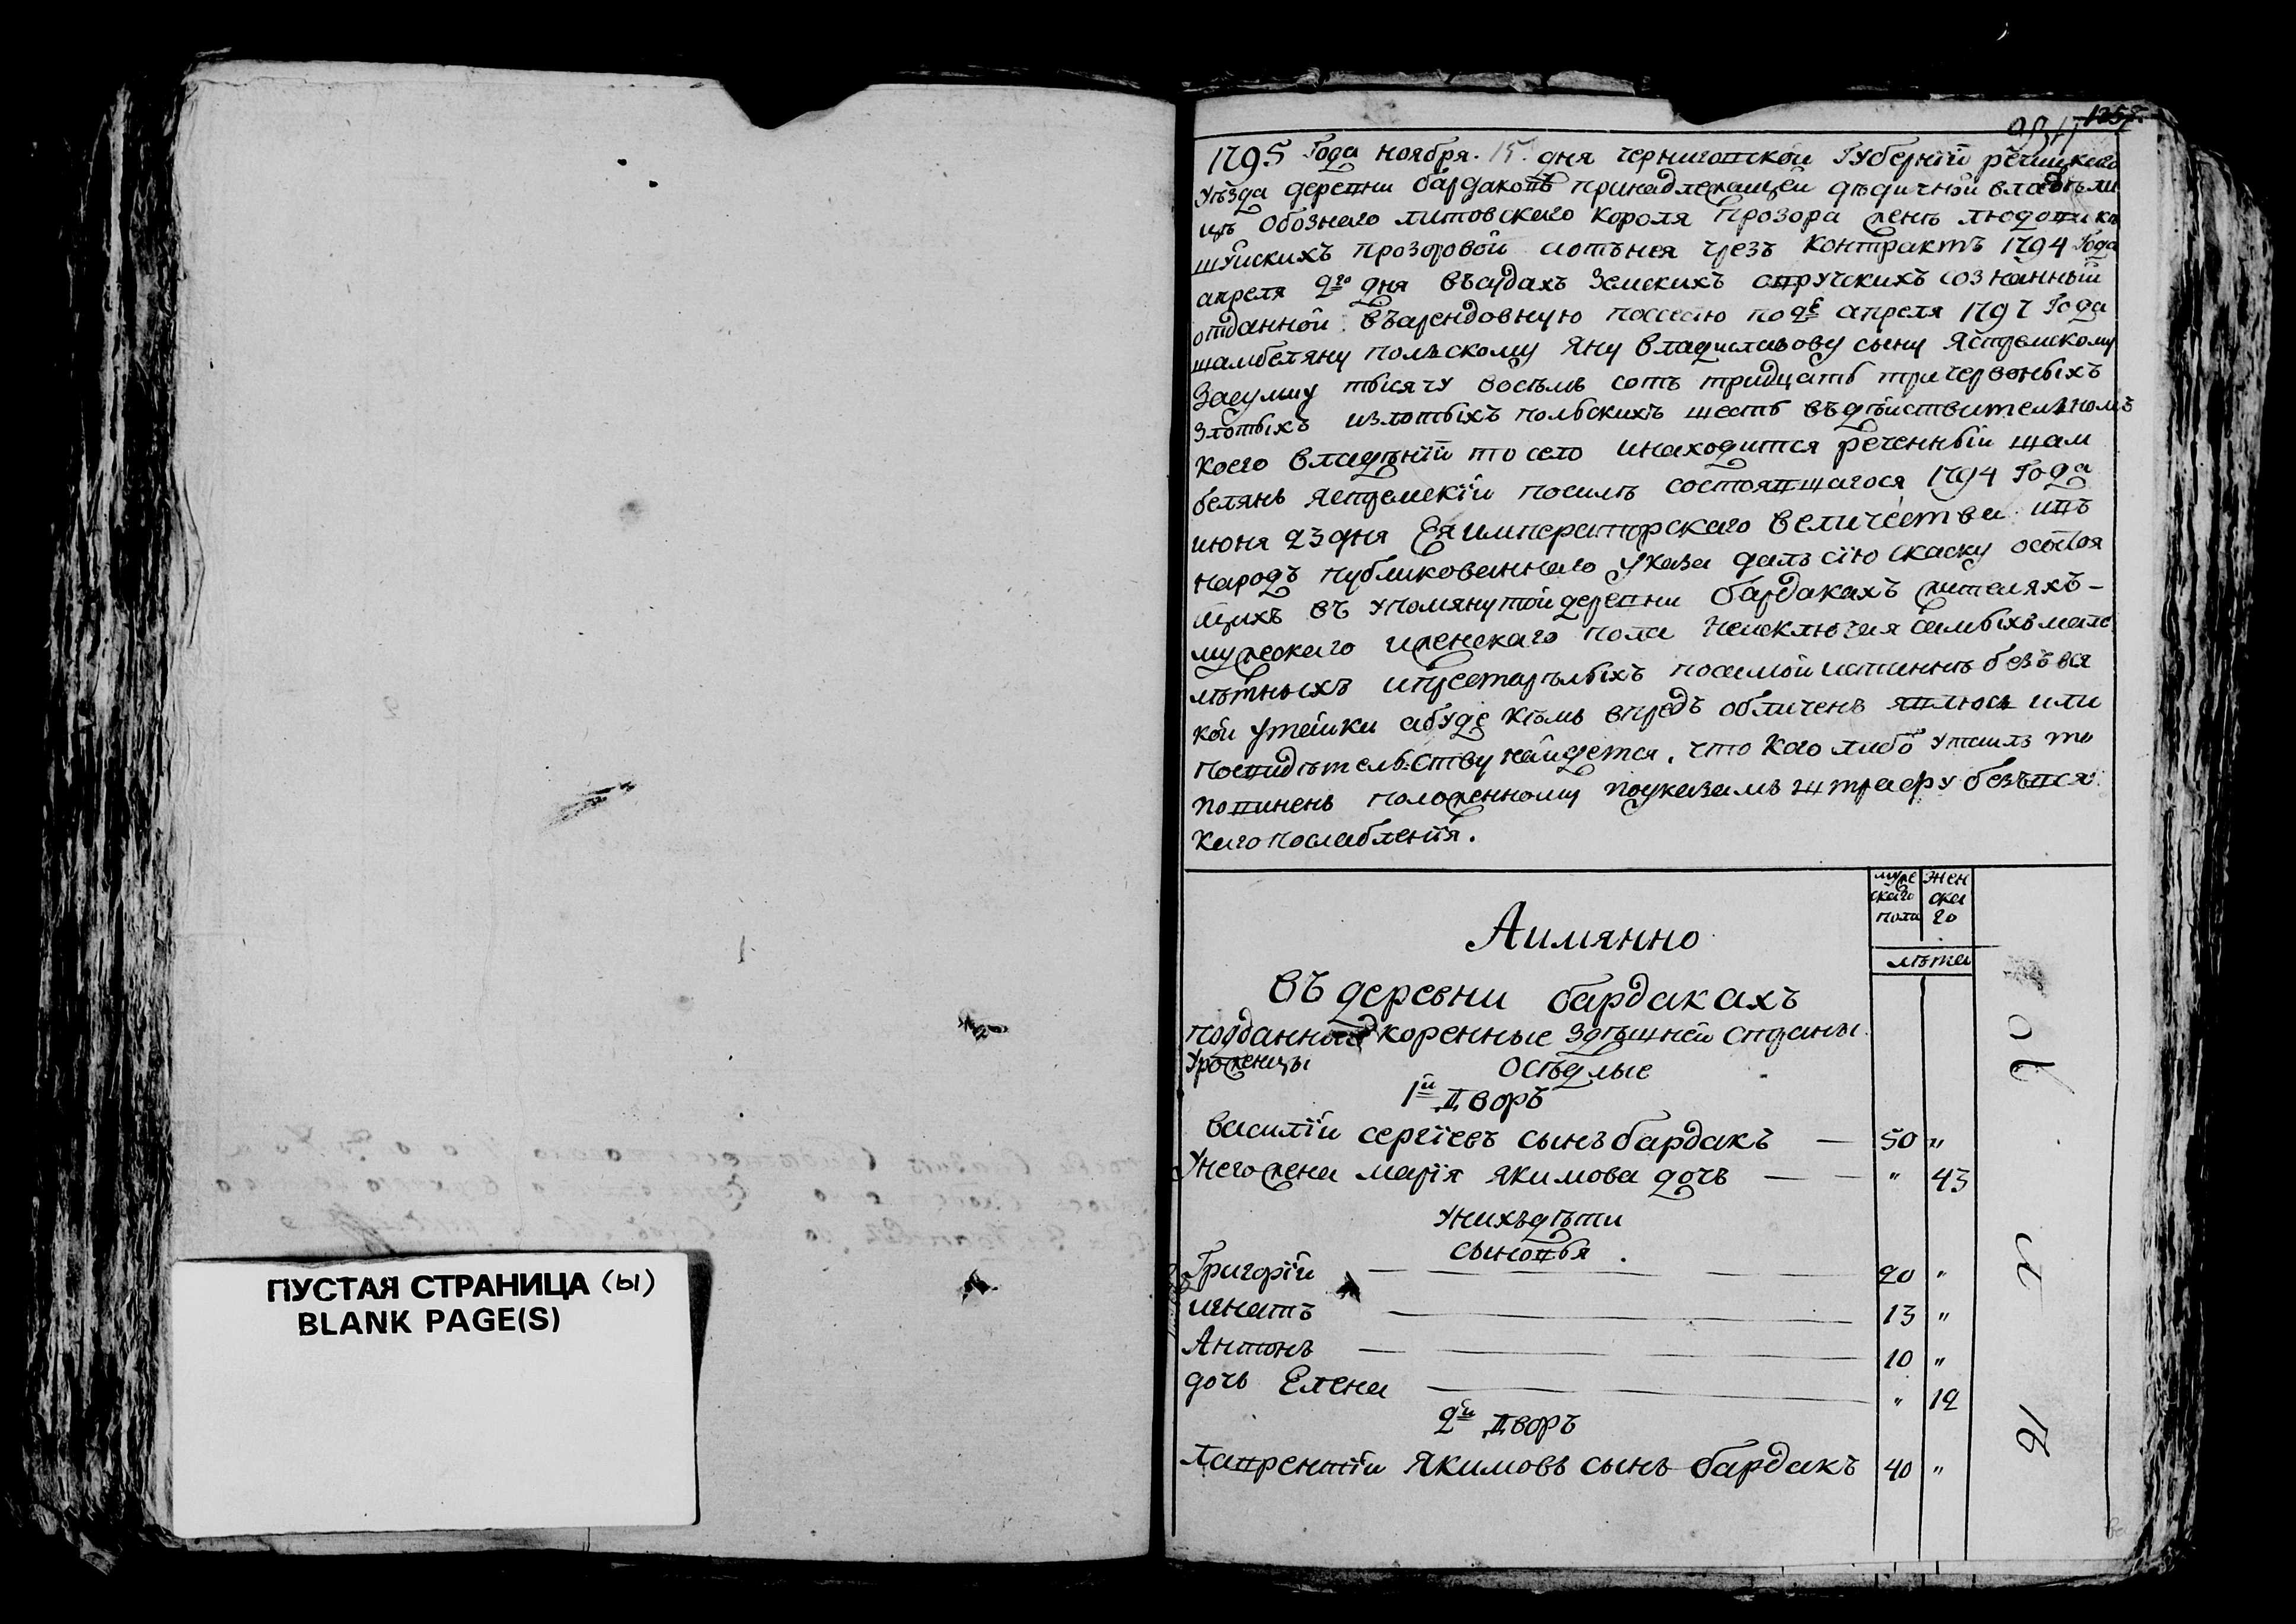 ПУСТАЯ СТРАНИЦА (ы)
BLANK PAGE(S)
1257.
1795 Года ноября. 15. дня черниговской Губерніи речицкаго
уѣзда деревни бардаковъ принадлежащей дѣдичной владѣли
цѣ обознаго литовского короля прозора женѣ людовики
шуйскихъ прозоровой а отънея чрезъ контрактъ 1794 Года
апреля 2го дня въ судахъ земскихъ овручскихъ сознанный
отданной въарендовную пссесію по 2е апреля 1797 Года
шамбеляну польскому яну владиславову сыну
Засумму тысячу восѣмь сотъ тридцать три червоныхъ
злотыхъ излотыхъ польскихъ шесть въдѣйствителномъ
коего владѣніи то село инаходится реченный шам
белянъ посилѣ состоявшагося 1794 Года
июня 23 дня Ея императорского величества ивъ
народъ публикованнаго указа далъ сію скаску осостоя
щихъ въ упомянутой деревни бардакахъ жителяхъ -
мужеского иженскаго пола неисключая самыхъмало
лѣтныхъ ипрестарѣлыхъ посамой истиннѣ безъвся
кой утайки абуде кѣмъ впредь обличенъ явлюсь или
посвидѣтельству найдется, что кого либо утаилъ то
повиненъ положенному поуказамъ штрафу безъвся
каго послабленія.
муже
скаго
пола
жен
ска
го
лѣта
Аимянно
въ деревни бардакахъ
подданные коренные здѣшней страны
уроженцы осѣдлые
1й дворъ
василій сергіевъ сынъ бардакъ — 50 "
унего жена марія якимова дочь — — " 43
унихъдѣти
сыновья
Григорій — 20 "
игнатъ — 13 "
Антонъ — 10 "
дочь Елена — " 12
2й дворъ
лаврентій якимовъ сынъ бардакъ 40 "